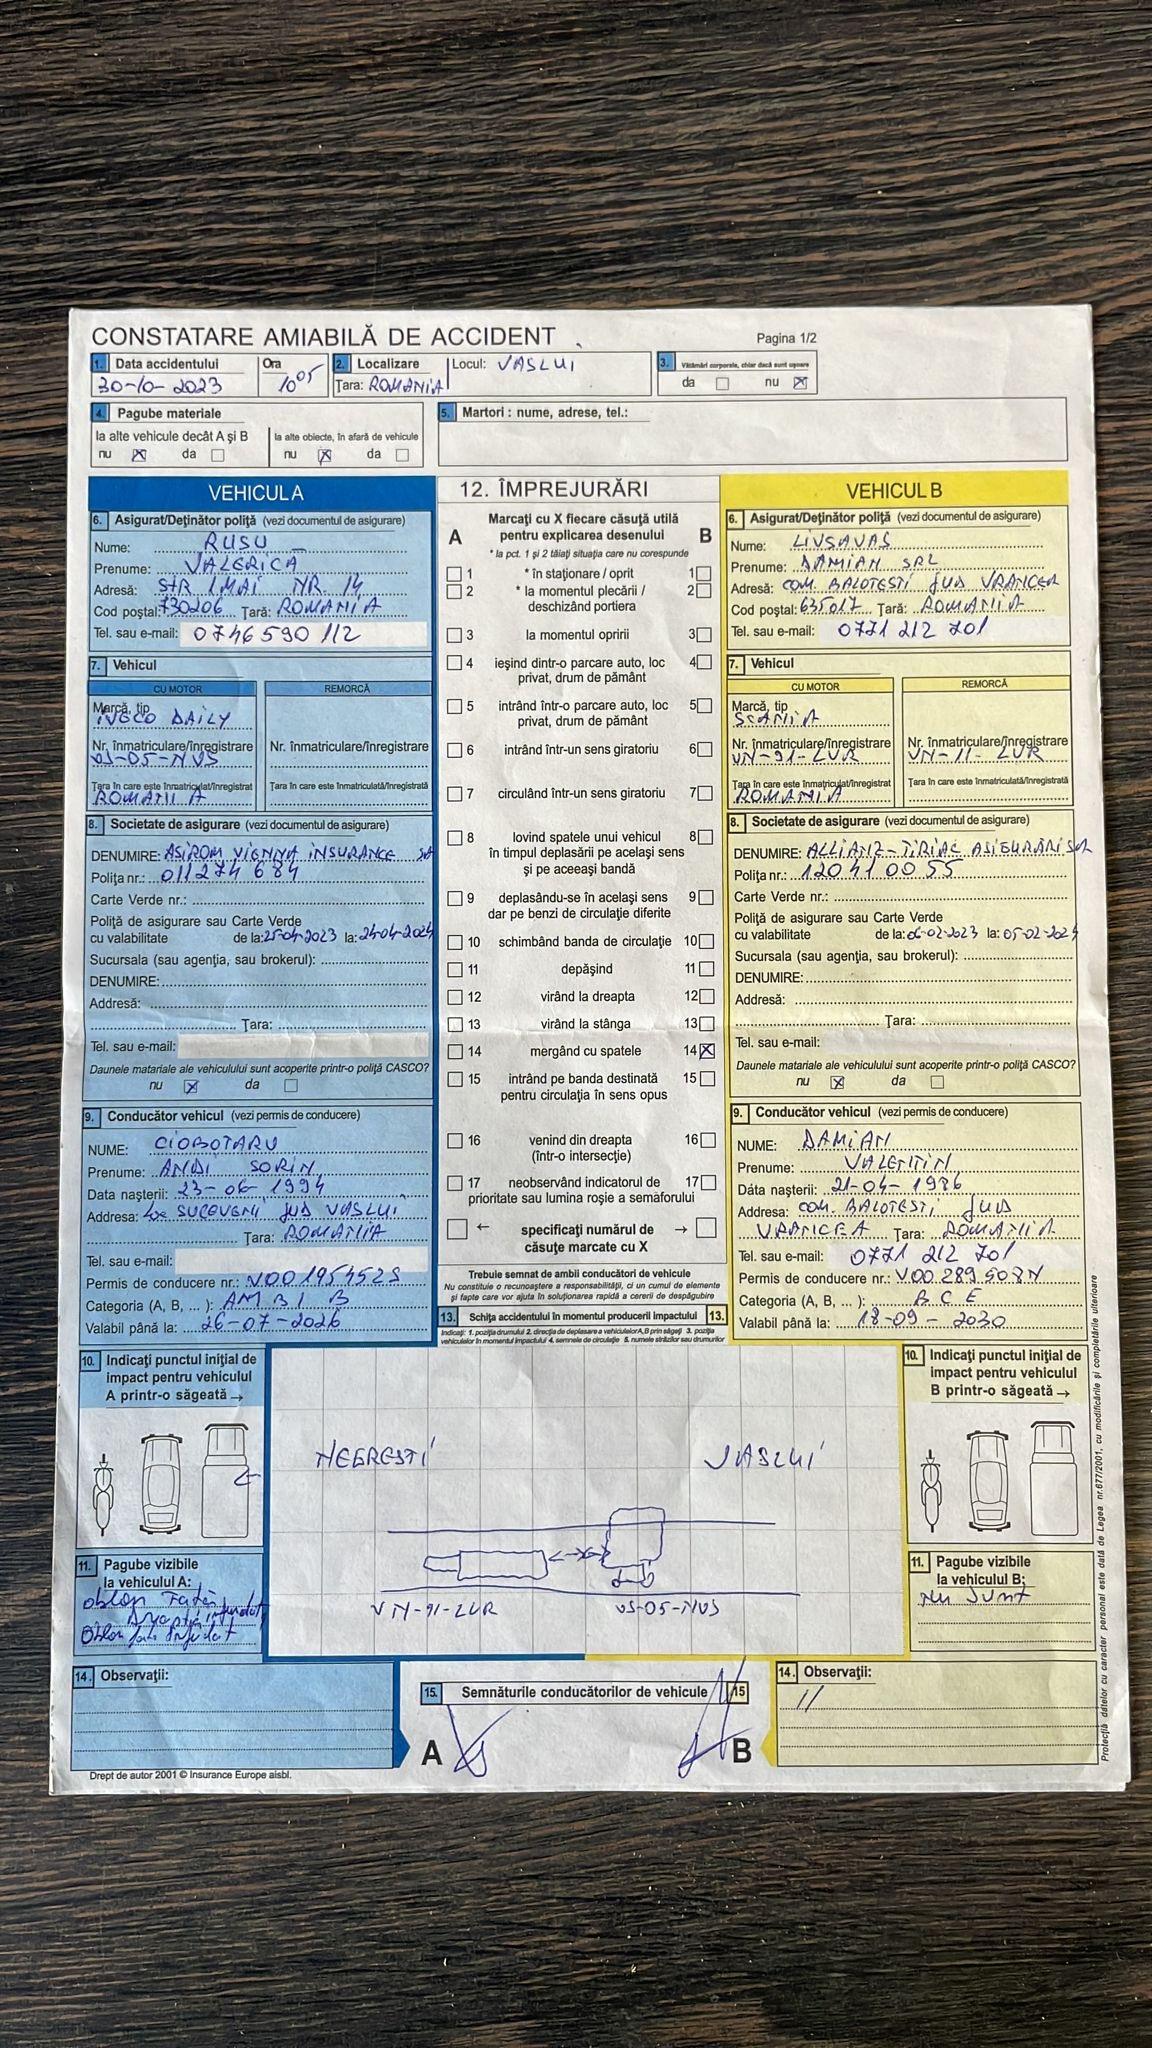 CONSTATARE AMIABILĂ DE ACCIDENT
Pagina 1/2
1. Data accidentului
30-10-2023
Ora
10 05
2. Localizare
Țara: ROMANIA
Locul: VASLUI
3. Vătămări corporale, chiar dacă sunt ușoare
da nu X
4. Pagube materiale
la alte vehicule decât A și B
nu X da
la alte obiecte, în afară de vehicule
nu X da
5. Martori : nume, adrese, tel.:
VEHICUL A
6. Asigurat/Deținător poliță (vezi documentul de asigurare)
Nume: RUSU
Prenume: VALERICA
Adresă: STR 1 MAI NR. 14
Cod poștal: 730206 Țară: ROMANIA
Tel. sau e-mail: 0746 590 112
7. Vehicul
CU MOTOR
Marcă, tip
IVECO DAILY
Nr. înmatriculare/înregistrare
VS-05-NVS
Țara în care este înmatriculat/înregistrat
ROMANIA
REMORCĂ
Nr. înmatriculare/înregistrare
Țara în care este înmatriculată/înregistrată
8. Societate de asigurare (vezi documentul de asigurare)
DENUMIRE: ASIROM VIENNA INSURANCE SA
Polița nr.: 011274684
Carte Verde nr.:
Poliță de asigurare sau Carte Verde
cu valabilitate de la: 25-04-2023 la: 24-04-2024
Sucursala (sau agenția, sau brokerul):
DENUMIRE:
Addresă:
Țara:
Tel. sau e-mail:
Daunele matariale ale vehiculului sunt acoperite printr-o poliță CASCO?
nu X da
9. Conducător vehicul (vezi permis de conducere)
NUME: CIOBOTARU
Prenume: ANDI SORIN
Data nașterii: 23-06-1994
Addresa: JUD VASLUI
Țara: ROMANIA
Tel. sau e-mail:
Permis de conducere nr.:
Categoria (A, B, ... ): AM B1 B
Valabil până la: 26-07-2026
12. ÎMPREJURĂRI
A
Marcați cu X fiecare căsuță utilă
pentru explicarea desenului
B
* la pct. 1 și 2 tăiați situația care nu corespunde
1 * în staționare / oprit 1
2 * la momentul plecării / 2
deschizând portiera
3 la momentul opririi 3
4 ieșind dintr-o parcare auto, loc 4
privat, drum de pământ
5 intrând într-o parcare auto, loc 5
privat, drum de pământ
6 intrând într-un sens giratoriu 6
7 circulând într-un sens giratoriu 7
8 lovind spatele unui vehicul 8
în timpul deplasării pe același sens
și pe aceeași bandă
9 deplasându-se în același sens 9
dar pe benzi de circulație diferite
10 schimbând banda de circulație 10
11 depășind 11
12 virând la dreapta 12
13 virând la stânga 13
14 mergând cu spatele 14 X
15 intrând pe banda destinată 15
pentru circulația în sens opus
16 venind din dreapta 16
(într-o intersecție)
17 neobservând indicatorul de 17
prioritate sau lumina roșie a semaforului
← specificați numărul de →
căsuțe marcate cu X
Trebuie semnat de ambii conducători de vehicule
Nu constituie o recunoaștere a responsabilității, ci un cumul de elemente
și fapte care vor ajuta în soluționarea rapidă a cererii de despăgubire
VEHICUL B
6. Asigurat/Deținător poliță (vezi documentul de asigurare)
Nume: LIVSAVAS
Prenume: DAMIAN SRL
Adresă: COM. BALOTESTI JUD VRANCEA
Cod poștal: 635017 Țară: ROMANIA
Tel. sau e-mail: 0771 212 701
7. Vehicul
CU MOTOR
Marcă, tip
SCANIA
Nr. înmatriculare/înregistrare
VN-91-LVR
Țara în care este înmatriculat/înregistrat
ROMANIA
REMORCĂ
Nr. înmatriculare/înregistrare
VN-11-LVR
Țara în care este înmatriculată/înregistrată
8. Societate de asigurare (vezi documentul de asigurare)
DENUMIRE: ALLIANZ-TIRIAC ASIGURARI SA
Polița nr.: 120410055
Carte Verde nr.:
Poliță de asigurare sau Carte Verde
cu valabilitate de la: 06-02-2023 la: 05-02-2024
Sucursala (sau agenția, sau brokerul):
DENUMIRE:
Addresă:
Țara:
Tel. sau e-mail:
Daunele matariale ale vehiculului sunt acoperite printr-o poliță CASCO?
nu X da
9. Conducător vehicul (vezi permis de conducere)
NUME: DAMIAN
Prenume: VALENTIN
Dáta nașterii: 21-04-1986
Addresa: COM. BALOTESTI JUD
VRANCEA Țara: ROMANIA
Tel. sau e-mail: 0771 212 701
Permis de conducere nr.: V00289508N
Categoria (A, B, ... ): B C E
Valabil până la: 18-09-2030
13. Schița accidentului în momentul producerii impactului 13.
Indicați: 1. poziția drumului 2. direcția de deplasare a vehiculelor A,B prin săgeți 3. poziția
vehiculelor în momentul impactului 4. semnele de circulație 5. numele străzilor sau drumurilor
10. Indicați punctul inițial de
impact pentru vehiculul
A printr-o săgeată →
NEGRESTI
VASLUI
VN-91-LVR
VS-05-NVS
10. Indicați punctul inițial de
impact pentru vehiculul
B printr-o săgeată →
11. Pagube vizibile
la vehiculul A:
oblon
oblon
11. Pagube vizibile
la vehiculul B:
Nu sunt
14. Observații:
15. Semnăturile conducătorilor de vehicule 15
A
B
14. Observații:
//
Drept de autor 2001 © Insurance Europe aisbl.
Protecția datelor cu caracter personal este dată de Legea nr.677/2001, cu modificările și completările ulterioare